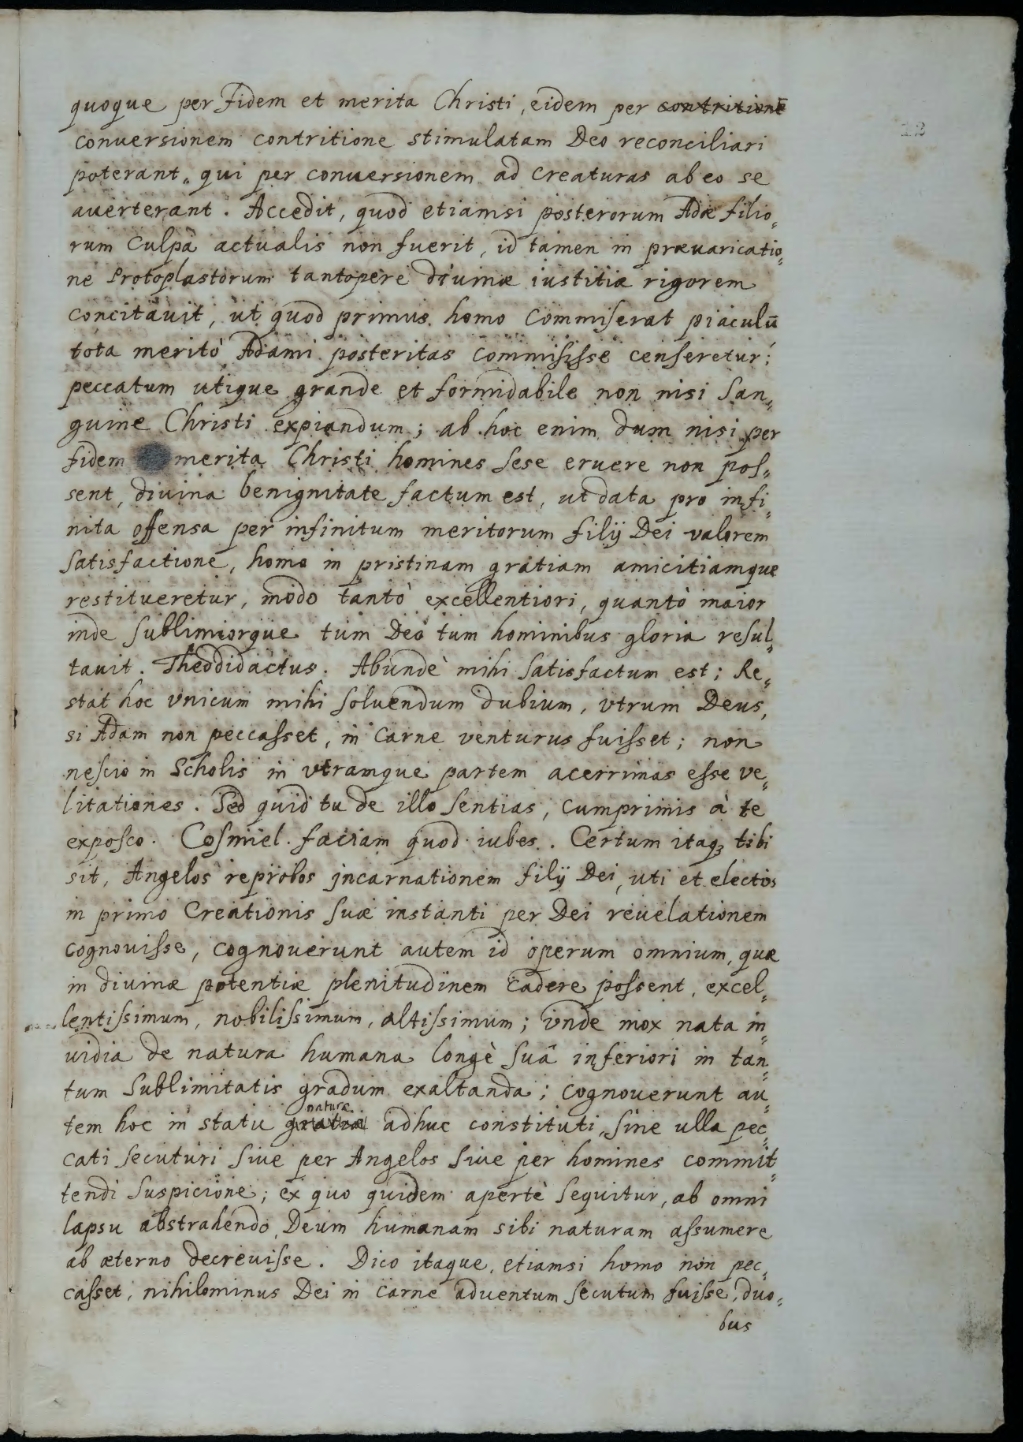 quoque per Fidem et merita Christi, eidem per contritionē
conuersionem contritione stimulatam Deo reconciliari
poterant, qui per conuersionem ad creaturas ab eo se
auerterant. Accedit, quod etiamsi posterorum Adæ filio,
rum Culpa actualis non fuerit, id tamen in præuaricatio,
ne Protoplastorum tantopere diuinæ iustitiæ rigorem
concitauit, ut quod primus homo Commiserat piaculū
tota meritò Adami posteritas Commisisse censeretur;
peccatum utique grande et formidabile non nisi San,
guine Christi expiandum; ab hoc enim dum nisi per
fidem merita Christi homines sese eruere non pos,
sent, diuina benignitate factum est, ut data pro infi,
nita offensa per infinitum meritorum filij Dei valorem
satisfactione, homo in pristinam gratiam amicitiamque
restitueretur, modo tantò excellentiori, quantò maior
inde sublimiorque tum Deo tum hominibus gloria resul,
tauit. Theodidactus. Abundè mihi satisfactum est; Re,
stat hoc vnicum mihi soluendum dubium, vtrum Deus,
si Adam non peccasset, in Carne venturus fuisset; non
nescio in Scholis in vtramque partem acerrimas esse ve,
litationes. Sed quid tu de illo sentias, cumprimis à te
exposco. Cosmiel. faciam quod iubes. Certum itaq; tibi
sit, Angelos reprobos jncarnationem filij Dei, uti et electos
in primo Creationis suæ instanti per Dei reuelationem
cognouisse, cognouerunt autem id operum omnium, quæ
in diuinæ potentiæ plenitudinem cadere possent, excel,
lentissimum, nobilissimum, altissimum; vnde mox nata in,
uidia de natura humana longè suâ inferiori in tan,
tum sublimitatis gradum exaltanda; cognouerunt au,
naturæ
tem hoc in statu gratiæ adhuc constituti, sine ulla pec,
cati secuturi siue per Angelos siue per homines commit,
tendi suspicione; ex quo quidem apertè sequitur, ab omni
lapsu abstrahendo, Deum humanam sibi naturam assumere
ab æterno decreuisse. Dico itaque, etiamsi homo non pec,
casset, nihilominus Dei in Carne aduentum secutum fuisse, duo,
bus
12